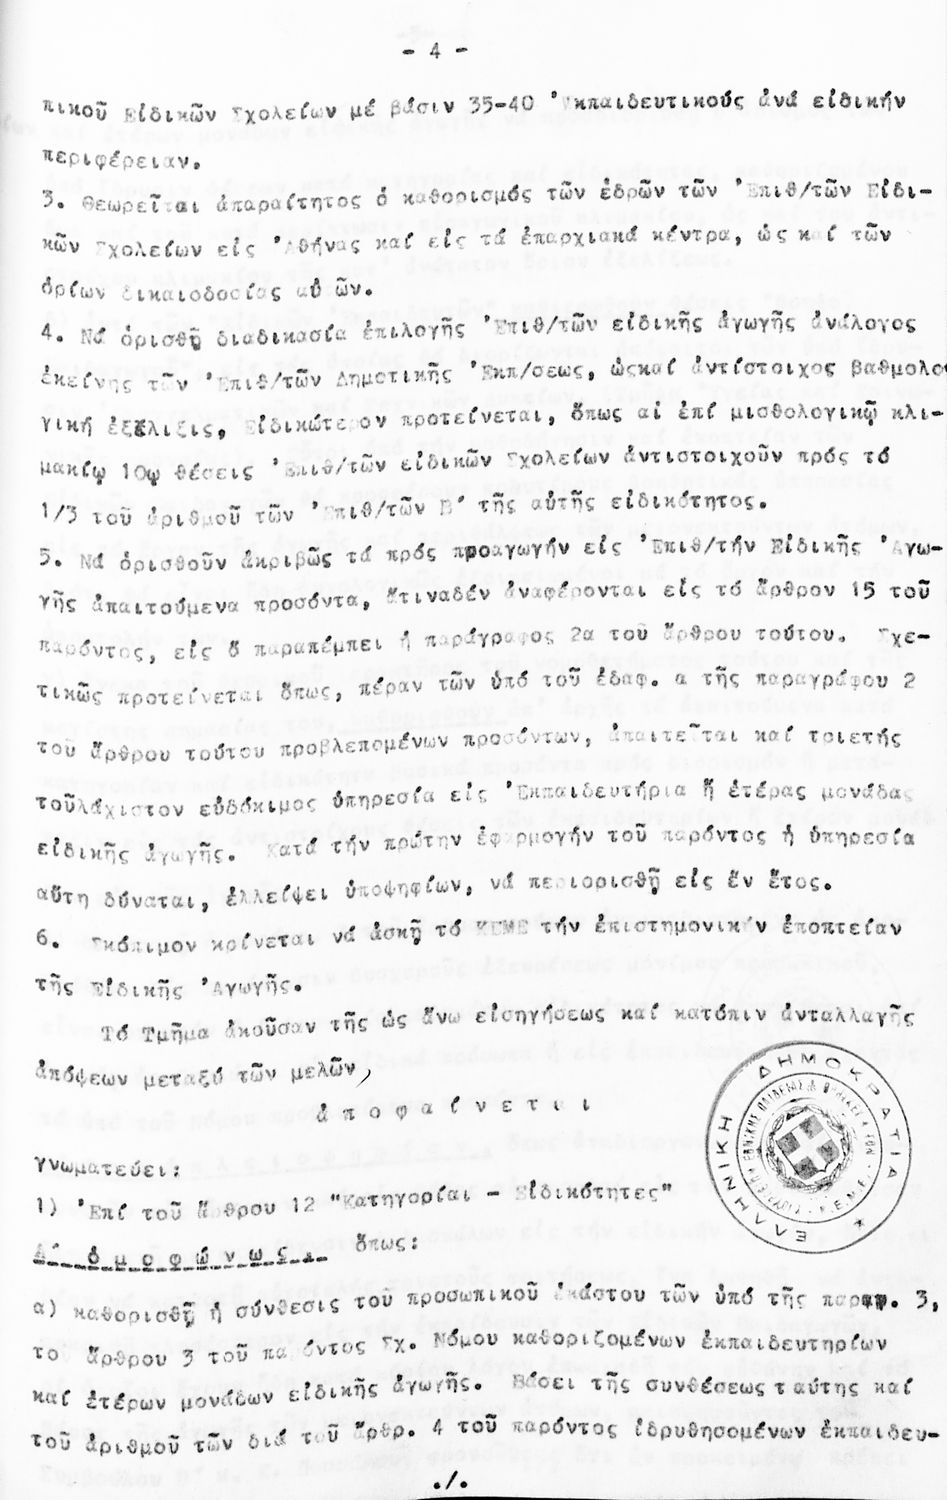 - 4 -
πικοῦ Εἰδικῶν Σχολείων μέ βάσιν 35-40 Ἐκπαιδευτικούς ἀνά εἰδικήν
περιφέρειαν.
3. Θεωρεῖται ἀπαραίτητος ὁ καθορισμός τῶν ἑδρῶν τῶν Ἐπιθ/τῶν Εἰδι-
κῶν Σχολείων εἰς Ἀθήνας καί εἰς τά ἐπαρχιακά κέντρα, ὡς καί τῶν
ὁρίων δικαιοδοσίας αὐ ῶν.
4. Νά ὁρισθῇ διαδικασία ἐπιλογῆς Ἐπιθ/τῶν εἰδικῆς ἀγωγῆς ἀνάλογος
ἐκείνης τῶν Ἐπιθ/τῶν Δημοτικῆς Ἐκπ/σεως, ὡςκαί ἀντίστοιχος βαθμολο
γική ἐξέλιξις, Εἰδικώτερον προτείνεται, ὅπως αἱ ἐπί μισθολογικῷ κλι-
μακίῳ 10ῳ θέσεις Ἐπιθ/τῶν εἰδικῶν Σχολείων ἀντιστοιχοῦν πρός τό
1/3 τοῦ ἀριθμοῦ τῶν Ἐπιθ/τῶν Β΄ τῆς αὐτῆς εἰδικότητος.
5. Νά ὁρισθοῦν ἀκριβῶς τά πρός προαγωγήν εἰς Ἐπιθ/τήν Εἰδικῆς Ἀγω-
γῆς ἀπαιτούμενα προσόντα, ἅτιναδέν ἀναφέρονται εἰς τό ἄρθρον 15 τοῦ
παρόντος, εἰς ὅ παραπέμπει ἡ παράγραφος 2α τοῦ ἄρθρου τούτου. Σχε-
τικῶς προτείνεται ὅπως, πέραν τῶν ὑπό τοῦ ἐδαφ. α τῆς παραγράφου 2
τοῦ ἄρθρου τούτου προβλεπομένων προσόντων, ἀπαιτεῖται καί τριετής
τοὐλάχιστον εὐδόκιμος ὑπηρεσία εἰς Ἐκπαιδευτήρια ἤ ἑτέρας μονάδας
εἰδικῆς ἀγωγῆς. Κατά τήν πρώτην ἐφαρμογήν τοῦ παρόντος ἡ ὑπηρεσία
αὕτη δύναται, ἐλλείψει ὑποψηφίων, νά περιορισθῇ εἰς ἕν ἔτος.
6. Σκόπιμον κρίνεται νά ἀσκῇ τό ΚΕΜΕ τήν ἐπιστημονικήν ἐποπτείαν
τῆς Εἰδικῆς Ἀγωγῆς.
Τό Τμῆμα ἀκοῦσαν τῆς ὡς ἄνω εἰσηγήσεως καί κατόπιν ἀνταλλαγῆς
ἀπόψεων μεταξύ τῶν μελῶν,
ἀ π ο φ α ί ν ε τ α ι
γνωματεύει:
1) Ἐπί τοῦ ἄ θρου 12 "Κατηγορίαι - Εἰδικότητες"
Α΄ ὁ μ ο φ ώ ν ω ς, ὅπως:
α) καθορισθῇ ἡ σύνθεσις τοῦ προσωπικοῦ ἑκάστου τῶν ὑπό τῆς παργρ. 3,
το ἄρθρου 3 τοῦ πα όντος Σχ. Νόμου καθοριζομένων ἐκπαιδευτηρίων
καί ἑτέρων μονάδων εἰδικῆς ἀγωγῆς. Βάσει τῆς συνθέσεως ταύτης καί
τοῦ ἀριθμοῦ τῶν διά τοῦ ἄρθρ. 4 τοῦ παρόντος ἱδρυθησομένων ἐκπαιδευ-
./.
ΕΛΛΗΝΙΚΗ ΔΗΜΟΚΡΑΤΙΑ
Κ.Ε.Μ.Ε.